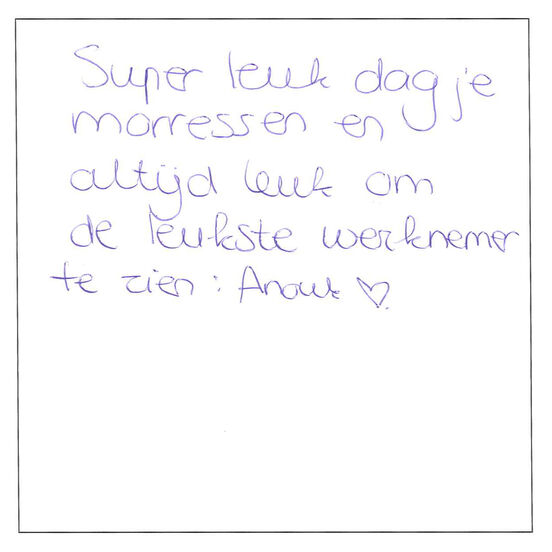 Super leuk dagje
morressen en
altijd leuk om
de leukste werknemer
te zien : Anouk ♡